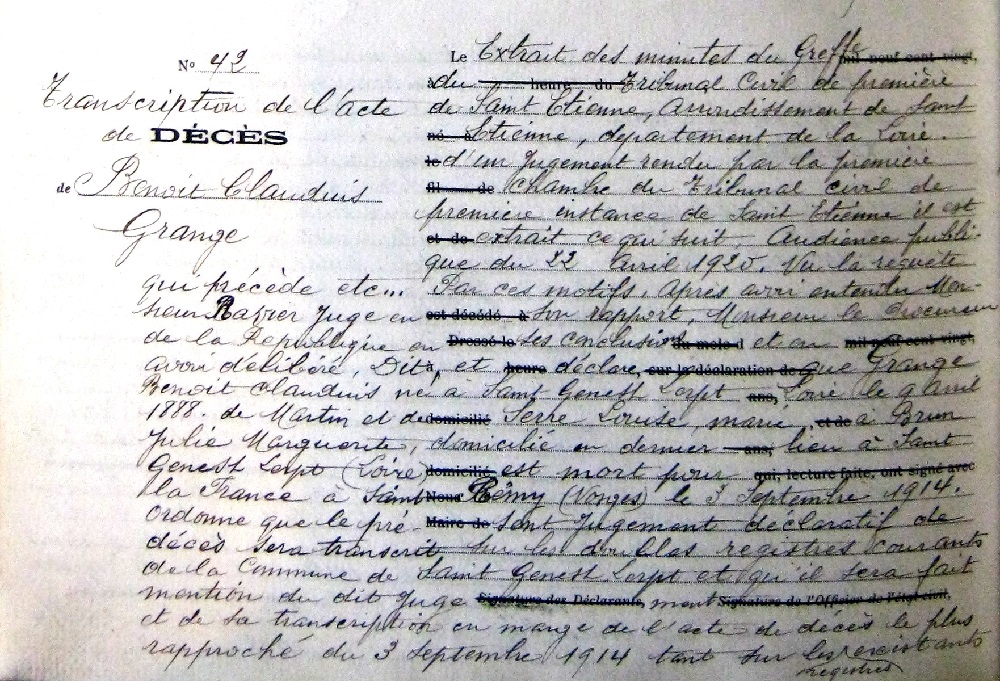 N° 42
Transcription de l'acte
de DÉCÈS
de Benoit Claudius
Grange
Le Extrait des minutes du Greffe mil neuf cent vingt,
à du heure du Tribunal Civil de première
de Saint Etienne, Arrondissement de Saint
né à Etienne, département de la Loire.
le d'un Jugement rendu par la première
fil de chambre du Tribunal civil de
première instance de Saint Etienne il est
et de extrait ce qui suit. Audience publi-
que du 22 Avril 1920. Vu la requête
qui précède etc... Par ces motifs, après avoir entendu Mon-
sieur Ravier Juge en est décédé à son rapport, Monsieur le Procureur
de la République en Dressé le ses conclusions du mois d et en mil neuf cent vingt,
avoir délibéré, Dit à, et heure déclare, sur la déclaration de que Grange
Benoit Claudius né à Saint Genest Lerpt ans, Loire le 9 avril
1888. de Martin et de domicilié Serre Louise, marié, et de à Brun
Julie Marguerite, domicilié en dernier ans, lieu à Saint
Genest Lerpt (Loire) domicilié est mort pour qui, lecture faite, ont signé avec
la France à Saint Nous Rémy (Vosges) le 3 Septembre 1914.
Ordonne que le pré- Maire de sent Jugement déclaratif de
décès sera transcrit sur les doubles registres courants
de la Commune de Saint Genest Lerpt et qu'il sera fait
mention du dit Juge Signature des Déclarants, ment Signature de l'Officier de l'état civil,
et de sa transcription en marge de l'acte de décès le plus
rapproché du 3 Septembre 1914 tant sur les existants
registres